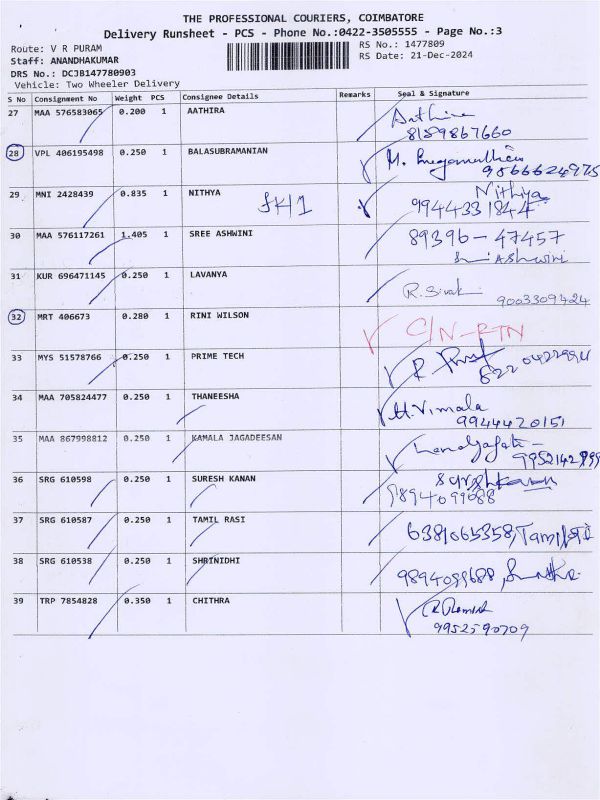 THE PROFESSIONAL COURIERS, COIMBATORE
Delivery Runsheet - PCS - Phone No.:0422-3505555 - Page No.:3
Route: V R PURAM
RS No.: 1477809
Staff: ANANDHAKUMAR
RS Date: 21-Dec-2024
DRS No.: DCJB147780903
Vehicle: Two Wheeler Delivery
S No Consignment No Weight PCS Consignee Details Remarks Seal & Signature
27 MAA 576583065 0.200 1 AATHIRA Aathira
8159867660
28 VPL 406195498 0.250 1 BALASUBRAMANIAN M.
9566624975
29 MNI 2428439 0.835 1 NITHYA Nithiya
9944331844
30 MAA 576117261 1.405 1 SREE ASHWINI 89396-47457
Ashwini
31 KUR 696471145 0.250 1 LAVANYA R.
9003309424
32 MRT 406673 0.280 1 RINI WILSON C/N-RTN
33 MYS 51578766 0.250 1 PRIME TECH R.
34 MAA 705824477 0.250 1 THANEESHA M.Vimala
9944420151
35 MAA 867998812 0.250 1 KAMALA JAGADEESAN
36 SRG 610598 0.250 1 SURESH KANAN
9894099688
37 SRG 610587 0.250 1 TAMIL RASI 6381065358,
38 SRG 610538 0.250 1 SHRINIDHI 9894099688,
39 TRP 7854828 0.350 1 CHITHRA
9952590709